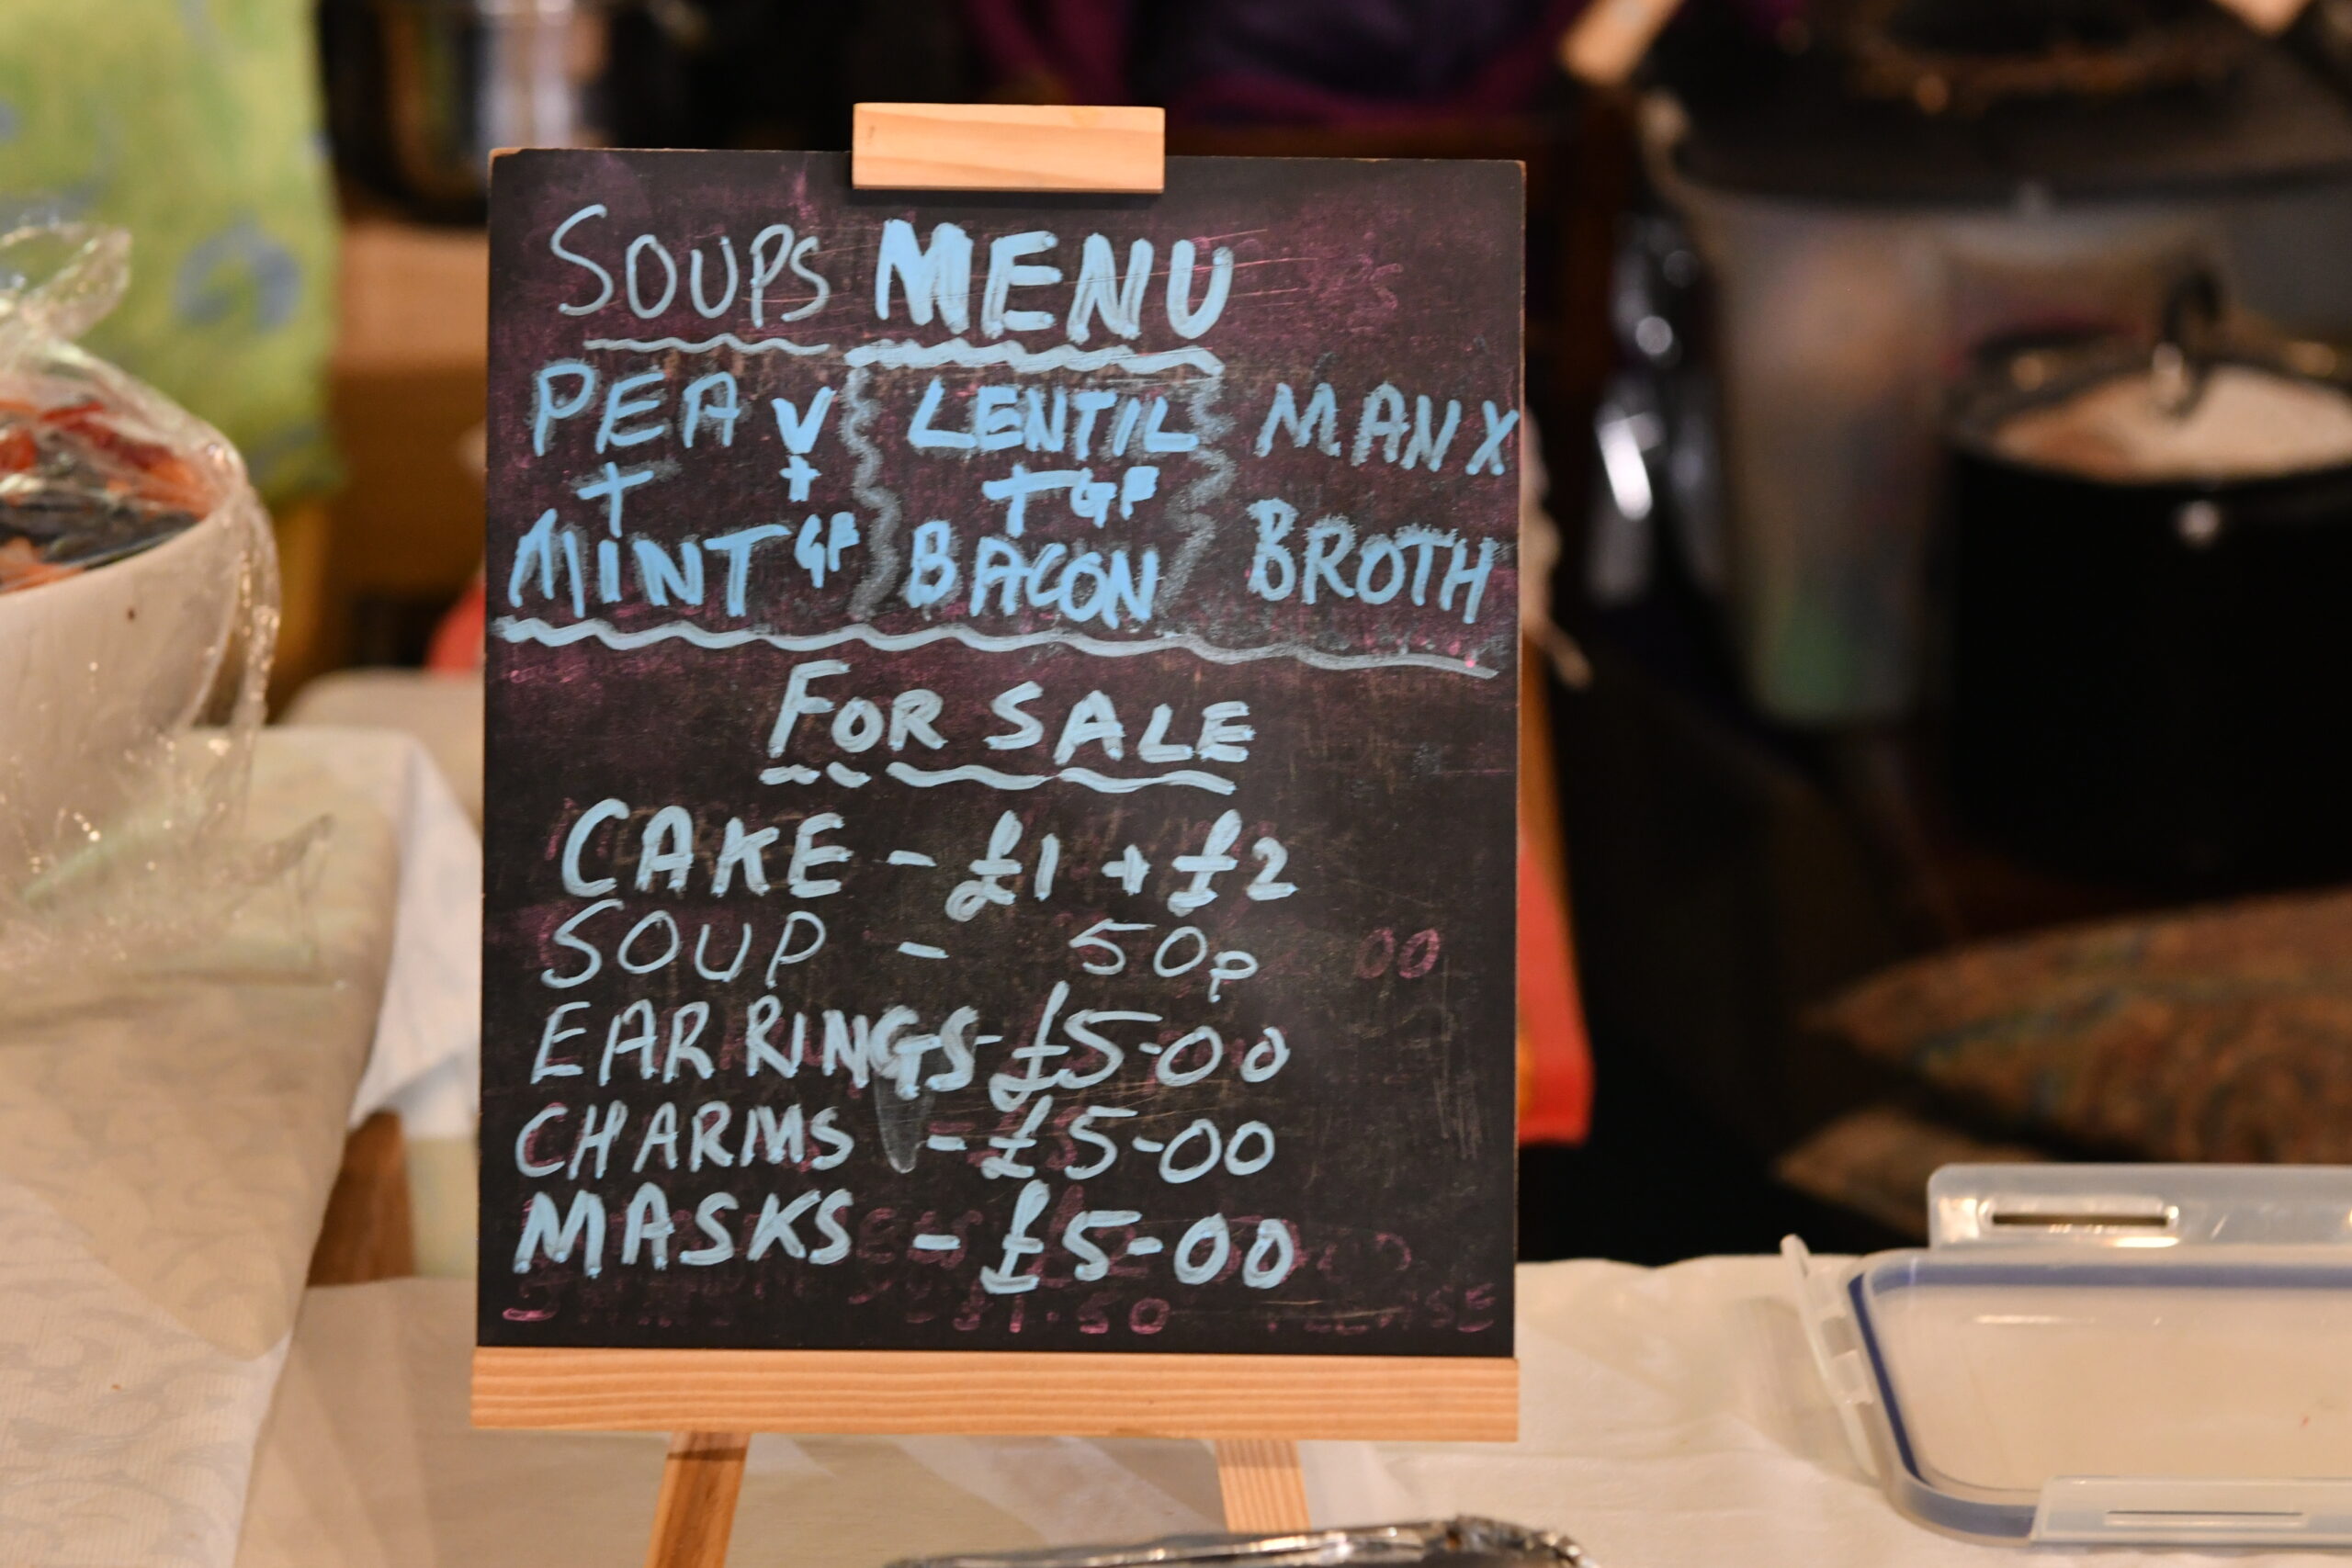 SOUPS MENU
PEA V LENTIL MANX
+ + + GF
MINT GF BACON BROTH
FOR SALE
CAKE - £1 + £2
SOUP - 50p
EARRINGS - £5-00
CHARMS - £5-00
MASKS - £5-00